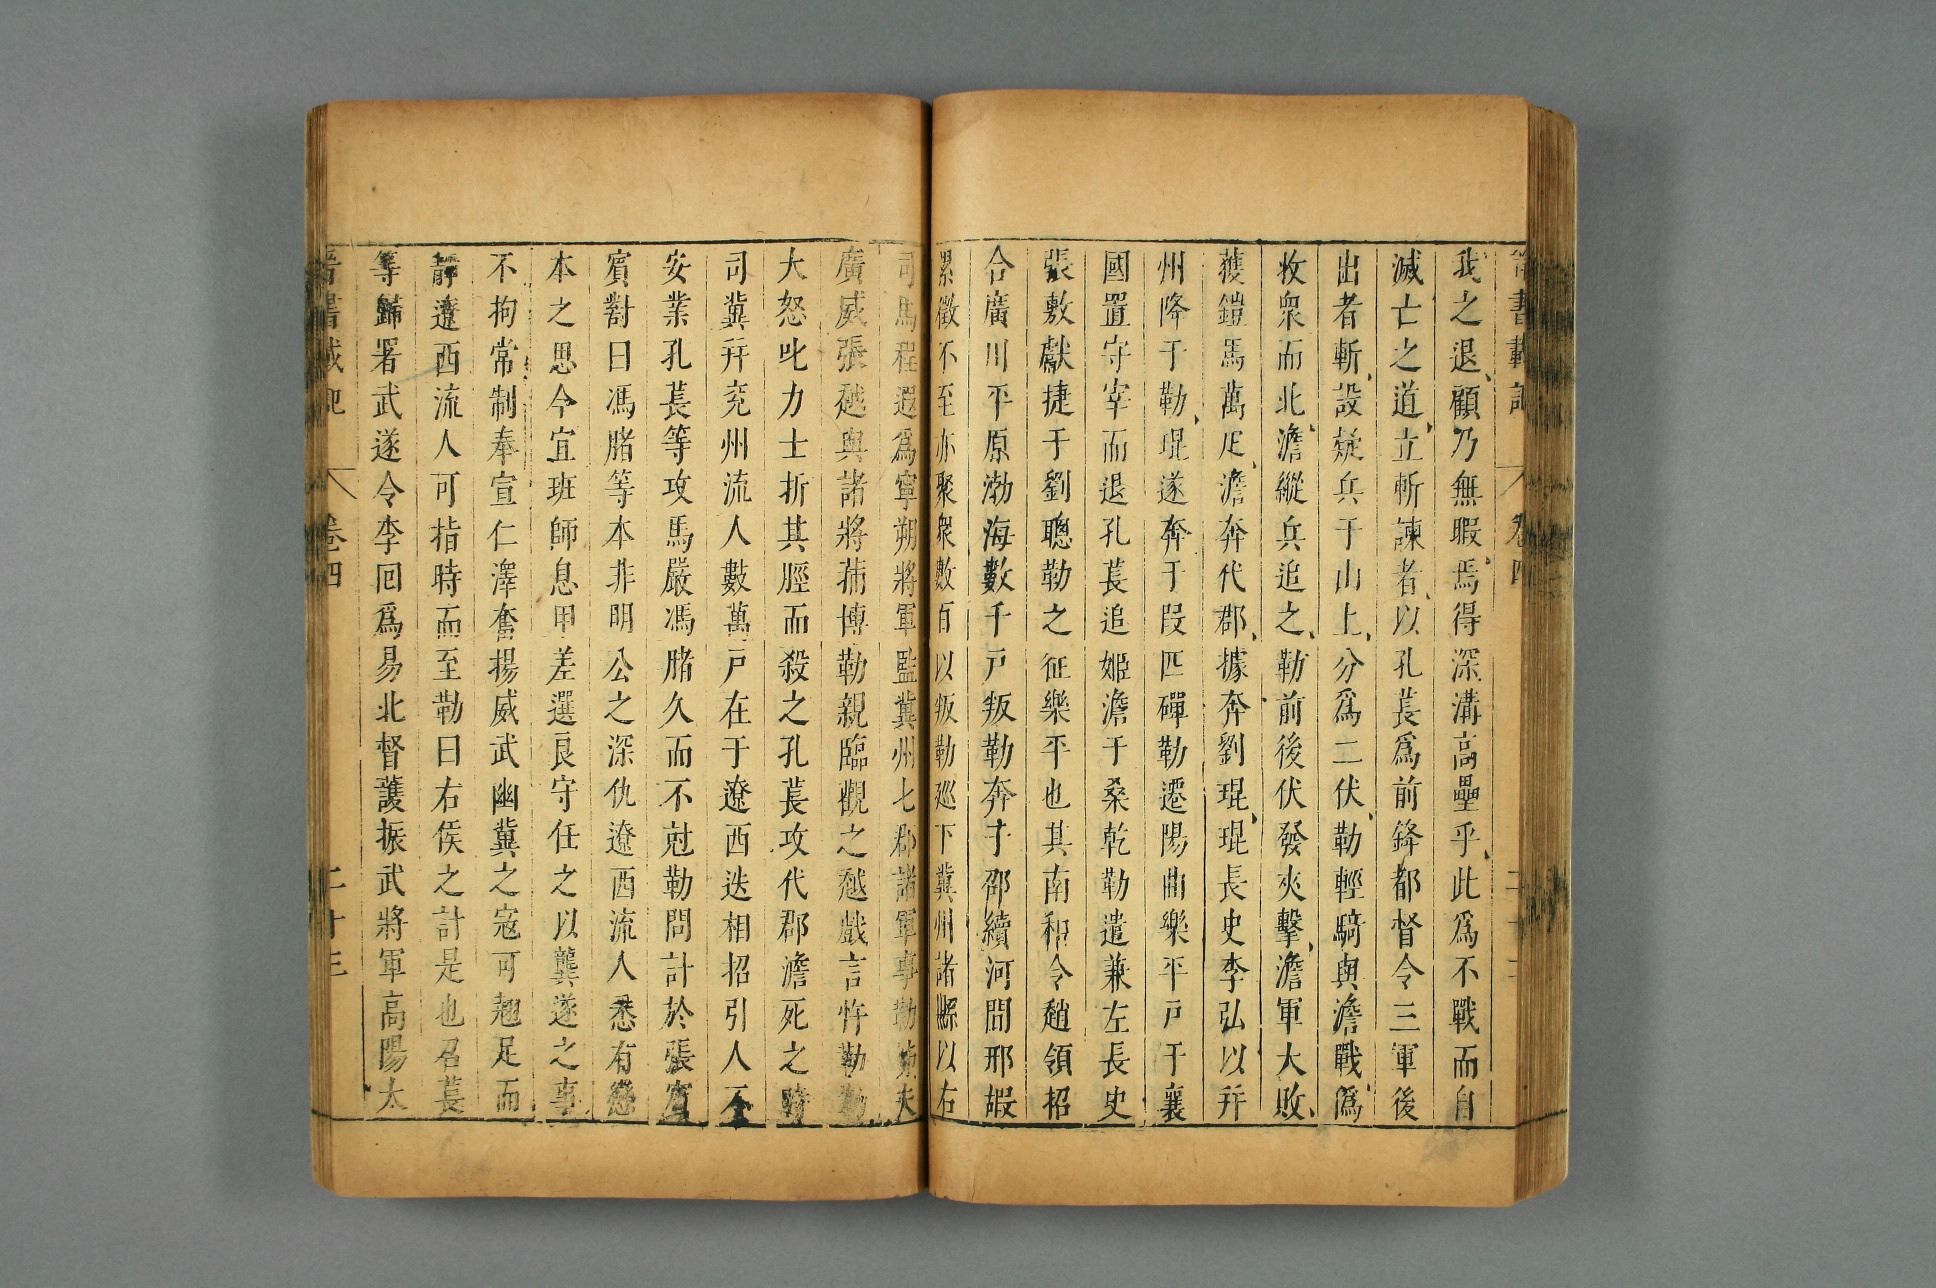 晉書載記 卷四
我之退、顧乃無暇、焉得深溝高壘乎、此爲不戰而自
滅亡之道、立斬諫者、以孔萇爲前鋒都督令三軍後
出者斬、設疑兵于山上、分爲二伏、勒輕騎與澹戰、僞
收衆而北、澹縱兵追之、勒前後伏發夾擊、澹軍大敗、
獲鎧馬萬疋、澹奔代郡、據奔劉琨、琨長史李弘以幷
州降于勒、琨遂奔于段匹磾勒遷陽曲樂平戸于襄
國置守宰而退孔萇追姬澹于桑乾勒遣兼左長史
張敷獻捷于劉聰勒之征樂平也其南和令趙領招
合廣川平原渤海數千戸叛勒奔于邵續河間邢嘏
累徵不至亦聚衆數百以叛勒巡下冀州諸縣以右
司馬程遐爲寧朔將軍監冀州七郡諸軍事勒姊夫
廣威張越與諸將蒱博勒親臨觀之越戲言忤勒勒
大怒叱力士折其脛而殺之孔萇攻代郡澹死之時
司冀幷兗州流人數萬戸在于遼西迭相招引人不
安業孔萇等攻馬嚴馮䐗久而不尅勒問計於張賓
賓對曰馮䐗等本非明公之深仇遼西流人悉有戀
本之思今宜班師息甲差選良守任之以龔遂之事
不拘常制奉宣仁澤奮揚威武幽冀之寇可翹足而
靜遼西流人可指時而至勒曰右侯之計是也召萇
等歸署武遂令李回爲易北督護振武將軍高陽太
晉書載記 卷四 二十三